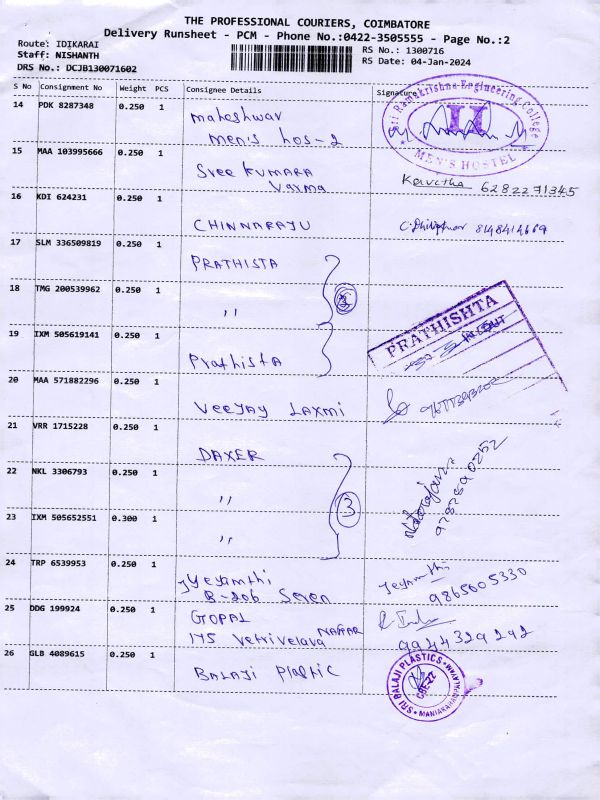 THE PROFESSIONAL COURIERS, COIMBATORE
Delivery Runsheet - PCM - Phone No.:0422-3505555 - Page No.:2
Route: IDIKARAI
Staff: NISHANTH
DRS No.: DCJB130071602
RS No.: 1300716
RS Date: 04-Jan-2024
S No Consignment No Weight PCS Consignee Details Signature
14 PDK 8287348 0.250 1 maheshwar
men's hos-2
Sri Ramakrishna Engineering College
II
MEN'S HOSTEL
15 MAA 103995666 0.250 1 Sree KUMARA
Varma
Kavitha 6282271345
16 KDI 624231 0.250 1 CHINNARAJU 8148414669
17 SLM 336509819 0.250 1 PRATHISTA
18 TMG 200539962 0.250 1 ,,
3
PRATHISHTA
19 IXM 505619141 0.250 1 Prathista
20 MAA 571882296 0.250 1 VeeJAY LAXMi
21 VRR 1715228 0.250 1 DAXER
22 NKL 3306793 0.250 1 ,,
3
23 IXM 505652551 0.300 1 ,,
24 TRP 6539953 0.250 1 Jeyamthi
B-206 Seven
Jeyamthi
9865005330
25 DDG 199924 0.250 1 GOPAL
175 Vetrivelava NAGAR
9944329292
26 GLB 4089615 0.250 1 BALAJI Plastic
SRI BALAJI PLASTICS
CBE-22